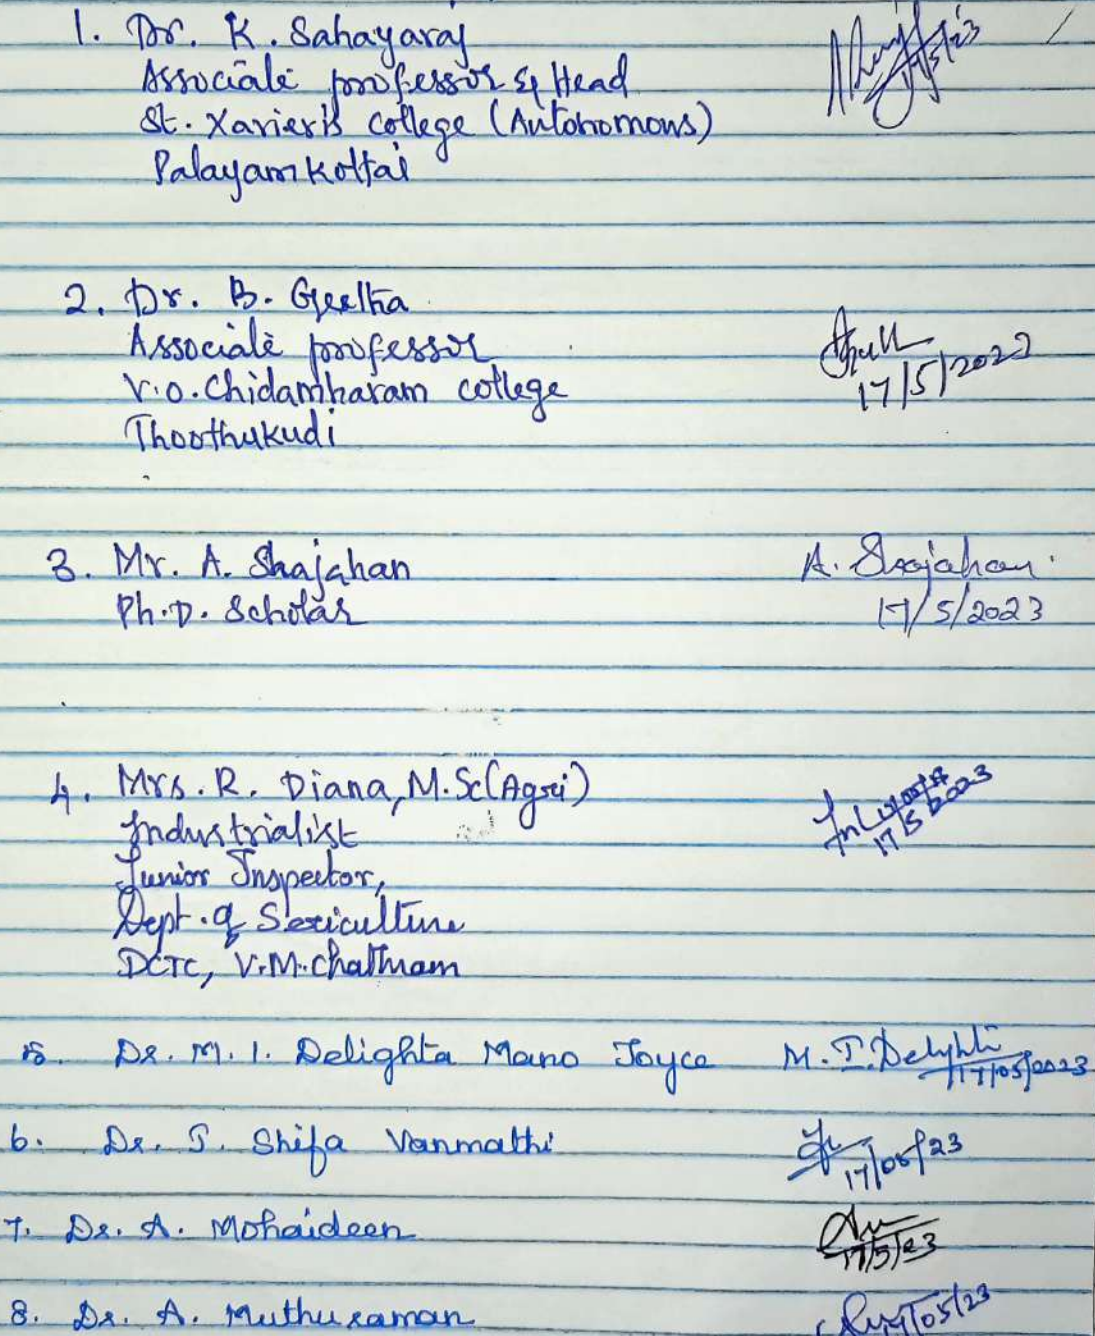 1. Dr. K. Sahayaraj
Associate professor & Head
St. Xavier's college (Autonomous)
Palayamkottai
17/5/23
2. Dr. B. Geetha
Associate professor
V.O. Chidambaram college
Thoothukudi
17/5/2023
3. Mr. A. Shajahan
Ph.D. Scholar
A. Shajahan
17/5/2023
4. Mrs. R. Diana, M.Sc(Agri)
Industrialist
Junior Inspector,
Dept. of Sericulture
DCTC, V.M. Chathram
17/5/2023
5. Dr. M. I. Delighta Mano Joyce M. I. Delighta
17/05/2023
6. Dr. S. Shifa Vanmathi
17/05/23
7. Dr. A. Mohaideen
17/5/23
8. Dr. A. Muthuraman
17/05/23